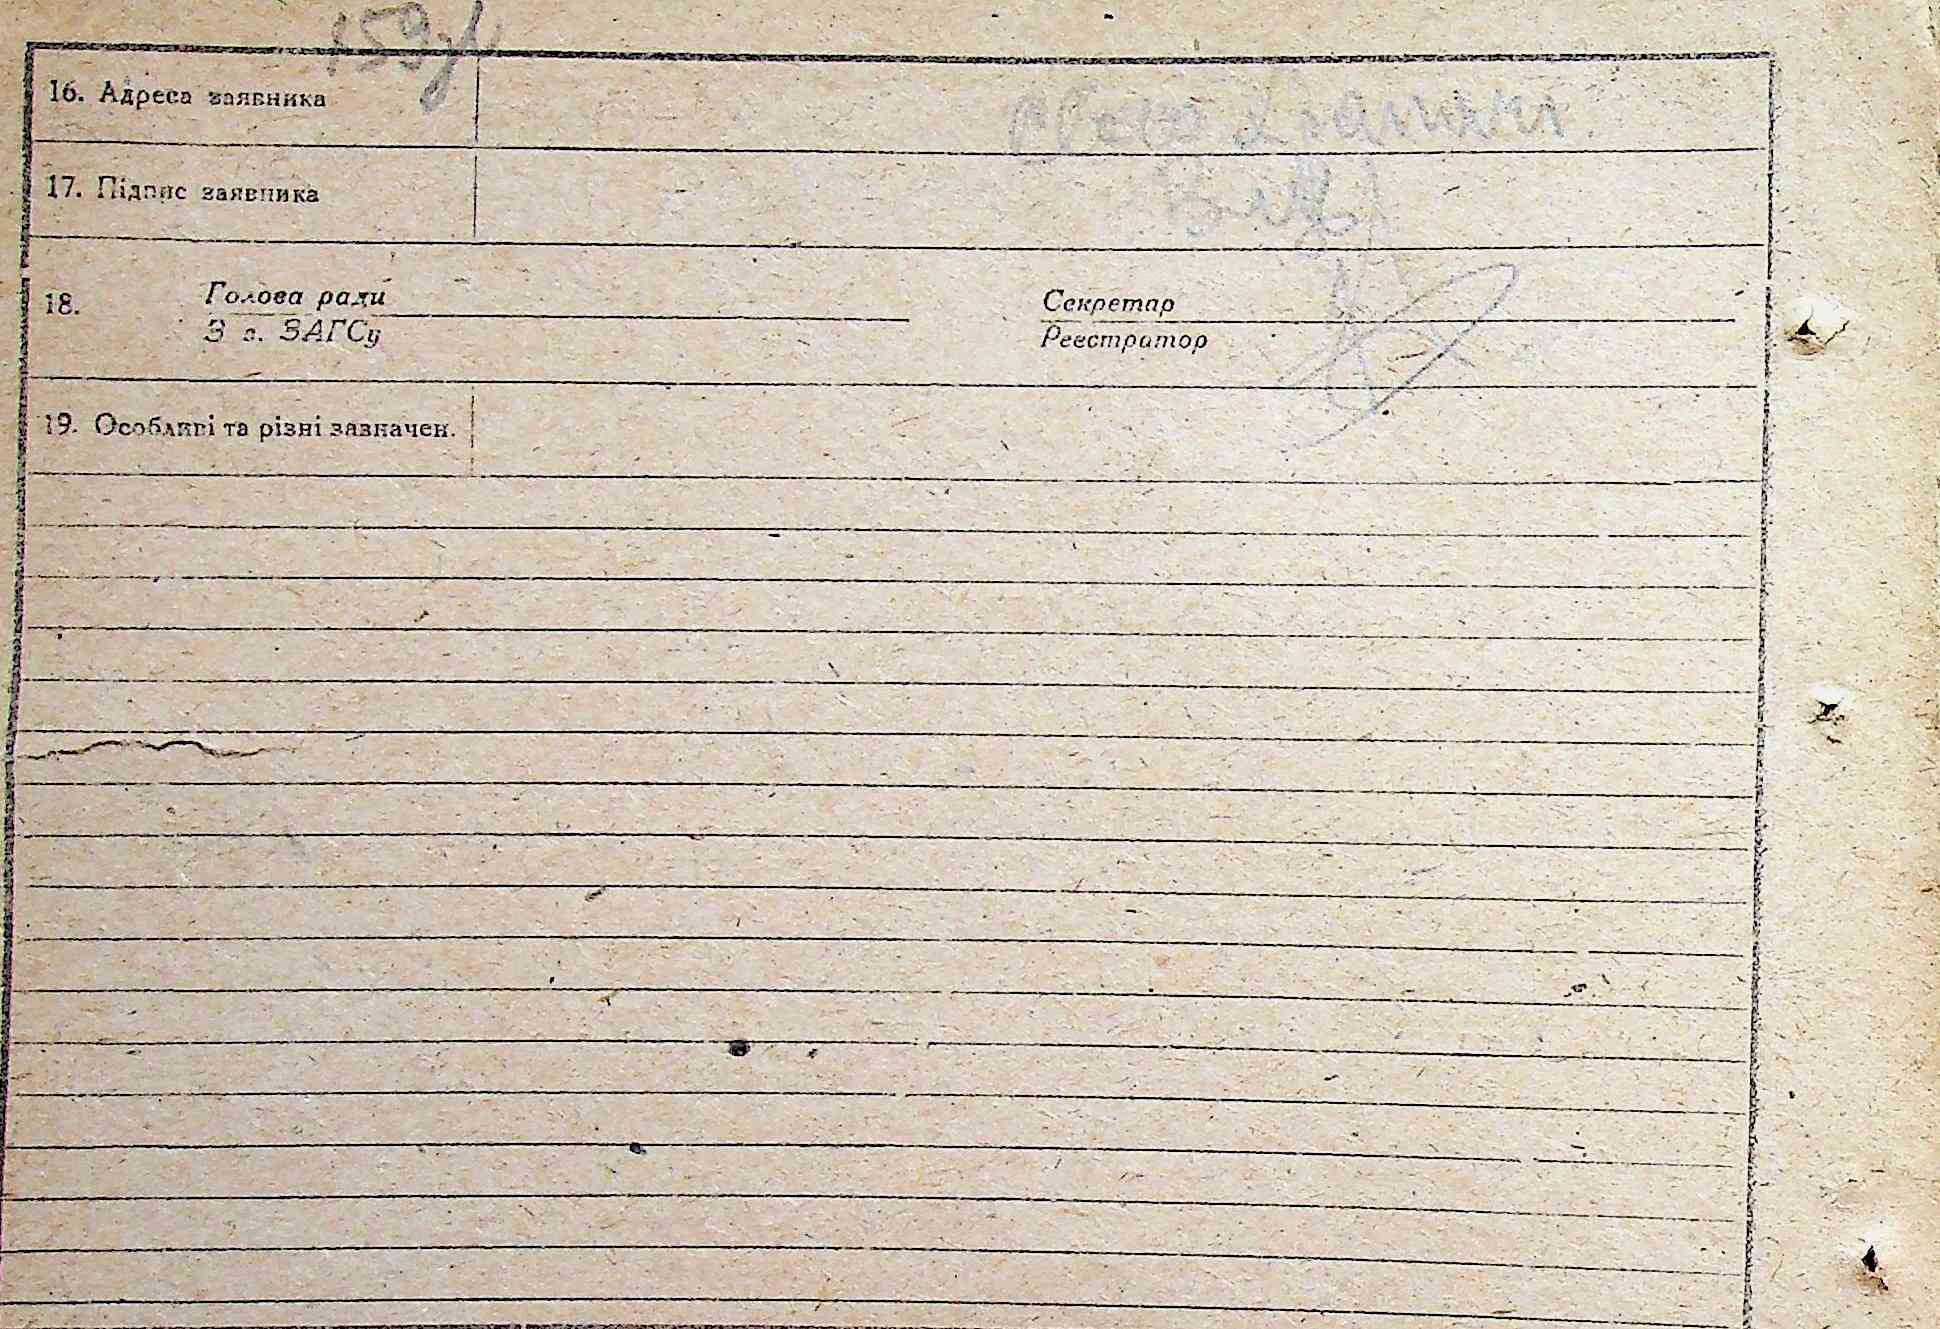 159
16. Адреса заявника
17. Підпис заявника
18. Голова ради Секретар
З в. ЗАГСу Реєстратор
19. Особливі та різні зазначен.